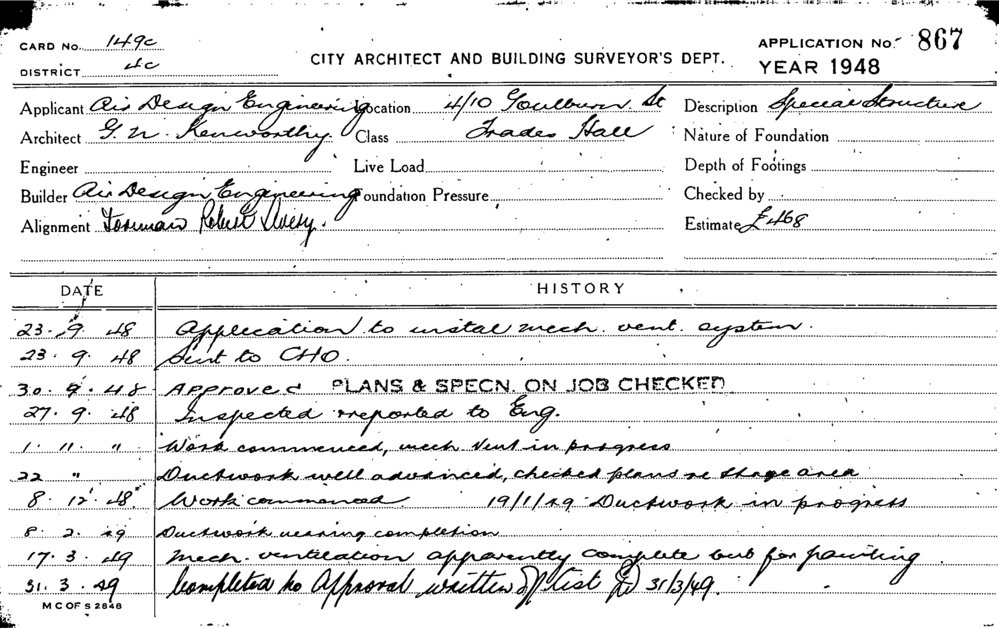 CARD No. 149c
CITY ARCHITECT AND BUILDING SURVEYOR'S DEPT.
APPLICATION No. 867
DISTRICT 4c
YEAR 1948
Applicant Air Design Engineering Location 4/10 Goulburn St Description Special Structure
Architect G. N. Kenworthy Class Trades Hall Nature of Foundation
Engineer Live Load Depth of Footings
Builder Air Design Engineering Foundation Pressure Checked by
Alignment Foreman Robert Avery. Estimate £468
DATE HISTORY
23. 9. 48 Application to instal mech. vent. system.
23. 9. 48 Sent to CHO.
30. 9. 48 Approved PLANS & SPECN. ON JOB CHECKED
27. 9. 48 Inspected reported to Eng.
1. 11. " Work commenced, mech vent in progress
22 " Ductwork well advanced, checked plans re stage area
8. 12. 48. Work commenced 19/1/49 Ductwork in progress
8. 2. 49 Ductwork nearing completion
17. 3. 49 Mech. ventilation apparently complete but for painting
31. 3. 49 Completed to Approval written test 31/3/49.
M C OF S 2848